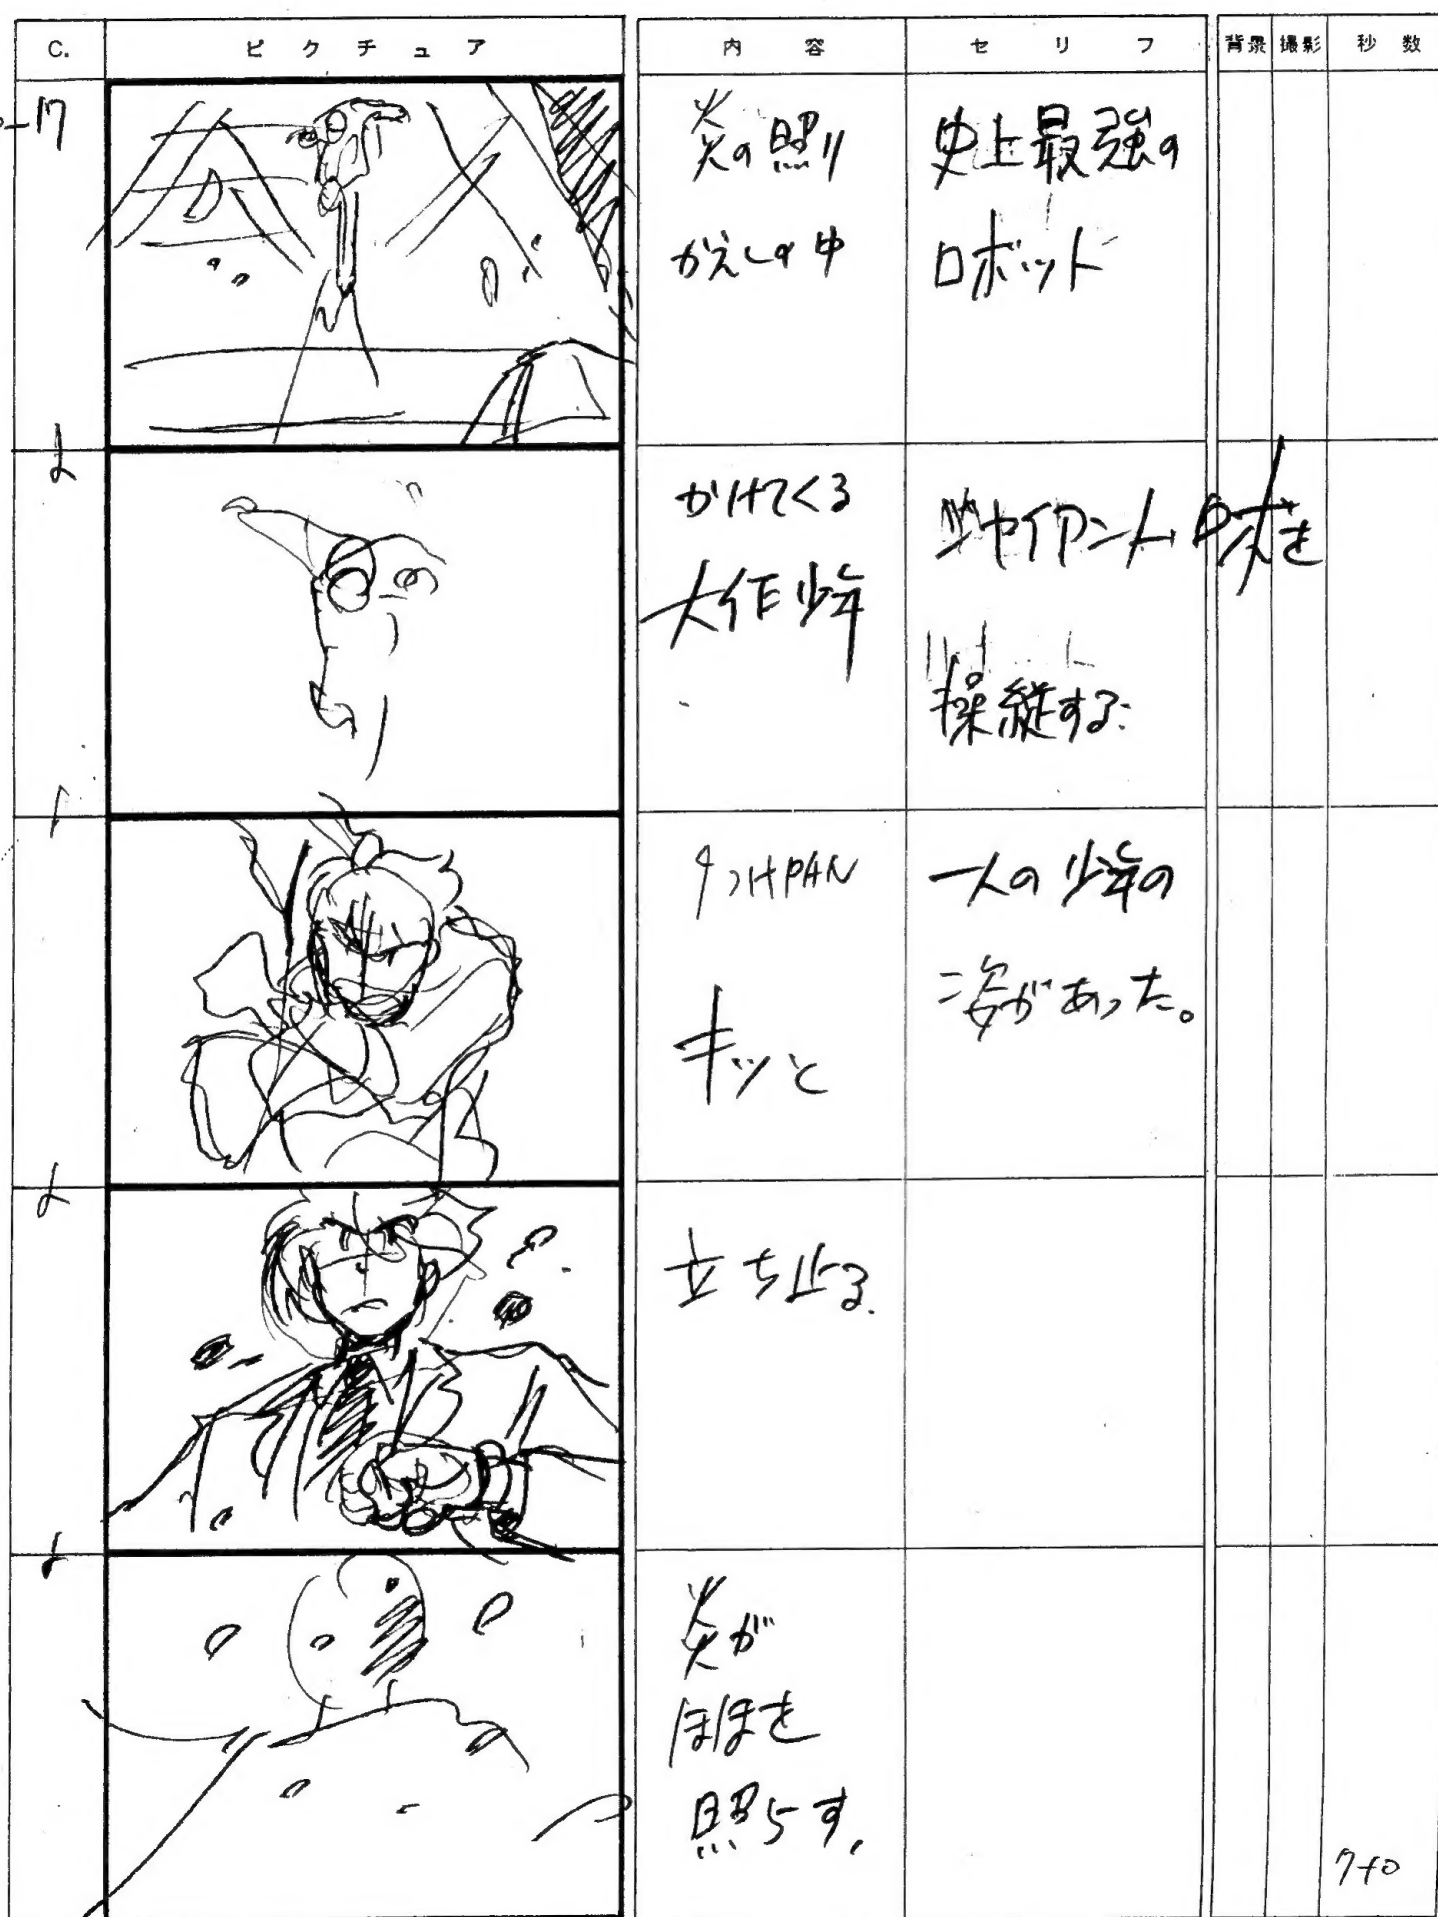 C.
ピクチュア
内容
セリフ
背景
撮影
秒数
-17
炎の照り
かえしの中
史上最強の
ロボット
かけてくる
大作少年
ジャイアントロボを
操縦する
PAN
キッと
一人の少年の
姿があった。
立ち止る.
炎が
ほほを
照らす.
7+0